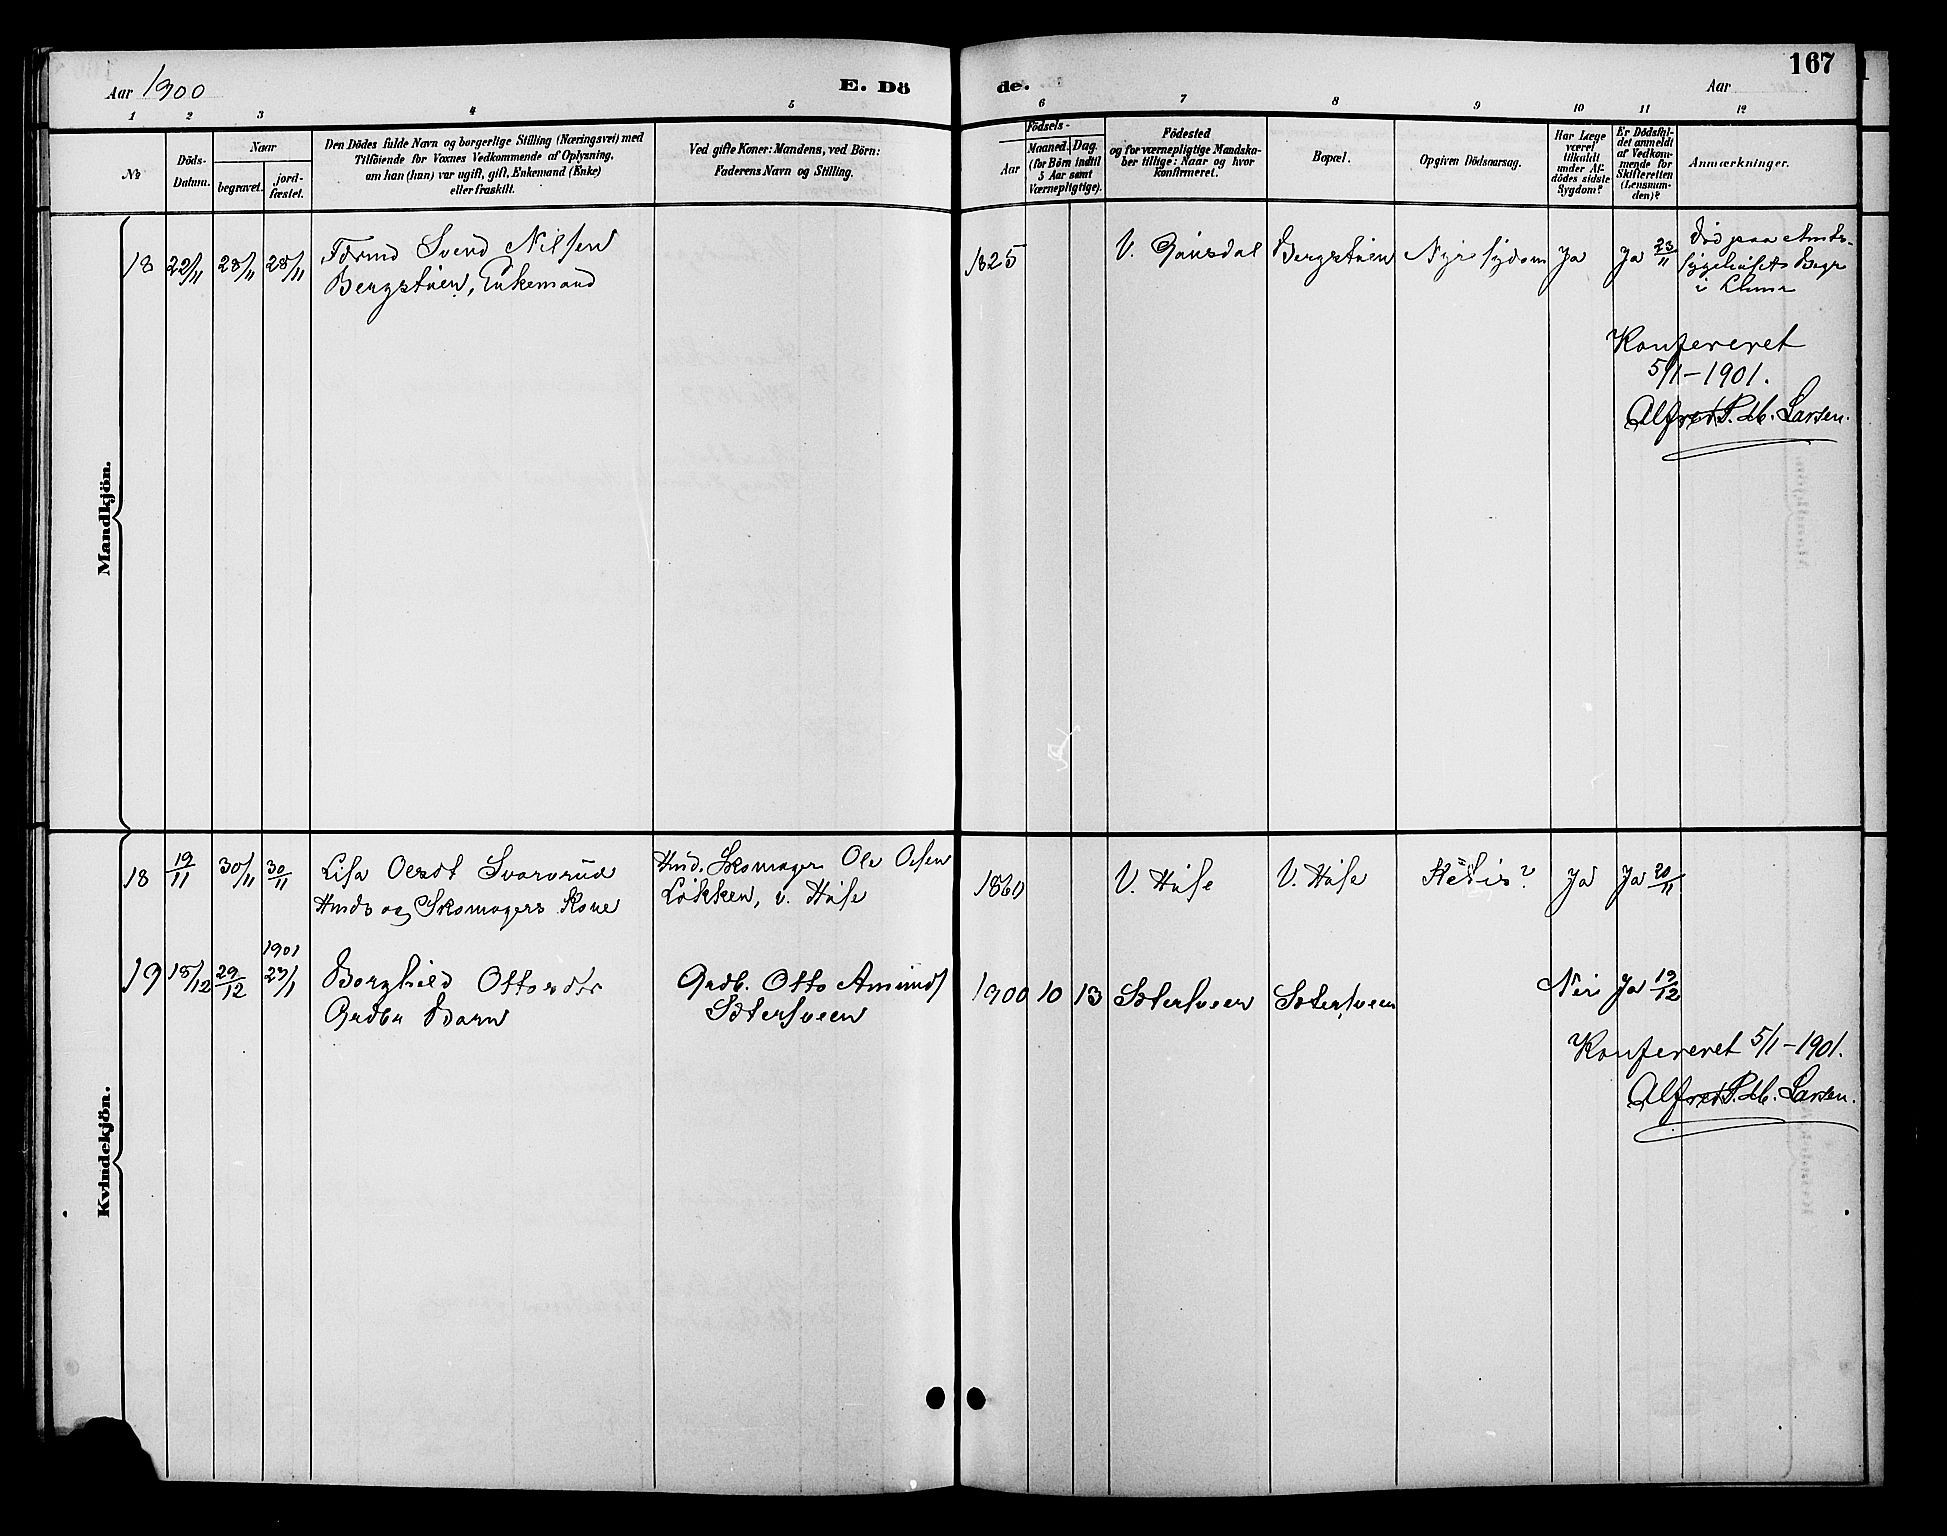 167
Aar 1900 E. Dö de. Aar
1 2 3 4 5 6 7 8 9 10 11 12
No
Döds-
Datum.
Naar
begravet.
jord-
fæstet.
Den Dödes fulde Navn og borgerlige Stilling (Næringsvei) med
Tilföiende for Voxnes Vedkommende af Oplysning,
om han (hun) var ugift, gift, Enkemand (Enke)
eller fraskilt.
Ved gifte Koner: Mandens, ved Börn:
Faderens Navn og Stilling.
Födsels-
Aar
Maaned. Dag.
(for Börn indtil
5 Aar samt
Værnepligtige).
Födested
og for værnepligtige Mandska-
ber tillige: Naar og hvor
konfirmeret.
Bopæl.
Opgiven Dödsaarsag.
Har Læge
været
tilkaldt
under Af-
dödes sidste
Sygdom?
Er Dödsfal-
det anmeldt
af Vedkom-
mende for
Skifteretten
(Lensman-
den)?
Anmærkninger.
Mandkjön.
18 22/11 28/11 28/11 Svend Nilsen
Bergstuen, Enkemand
1825 V. Gausdal Bergstuen Nyresygdom Ja Ja 23/11
Död paa Amts-
sygehuset. Begr
i
Konfereret
5/1-1901.
Alfred P. M. Larsen.
Kvindekjön.
18 19/11 30/11 30/11 Lisa Olesdt Svarverud
Husmds og Skomagers Kone
Husmd. Skomager Ole Olsen
Løkken, v.
V. V. Ja Ja 20/11
19 18/12 29/12 1901
23/1 Borghild Ottosdtr
Gadbr Barn
Gadb. Otto Amunds
Sætersveen
1900 10 13 Sætersveen Sætersveen Nei Ja 19/12
Konfereret 5/1-1901.
Alfred P. M. Larsen.